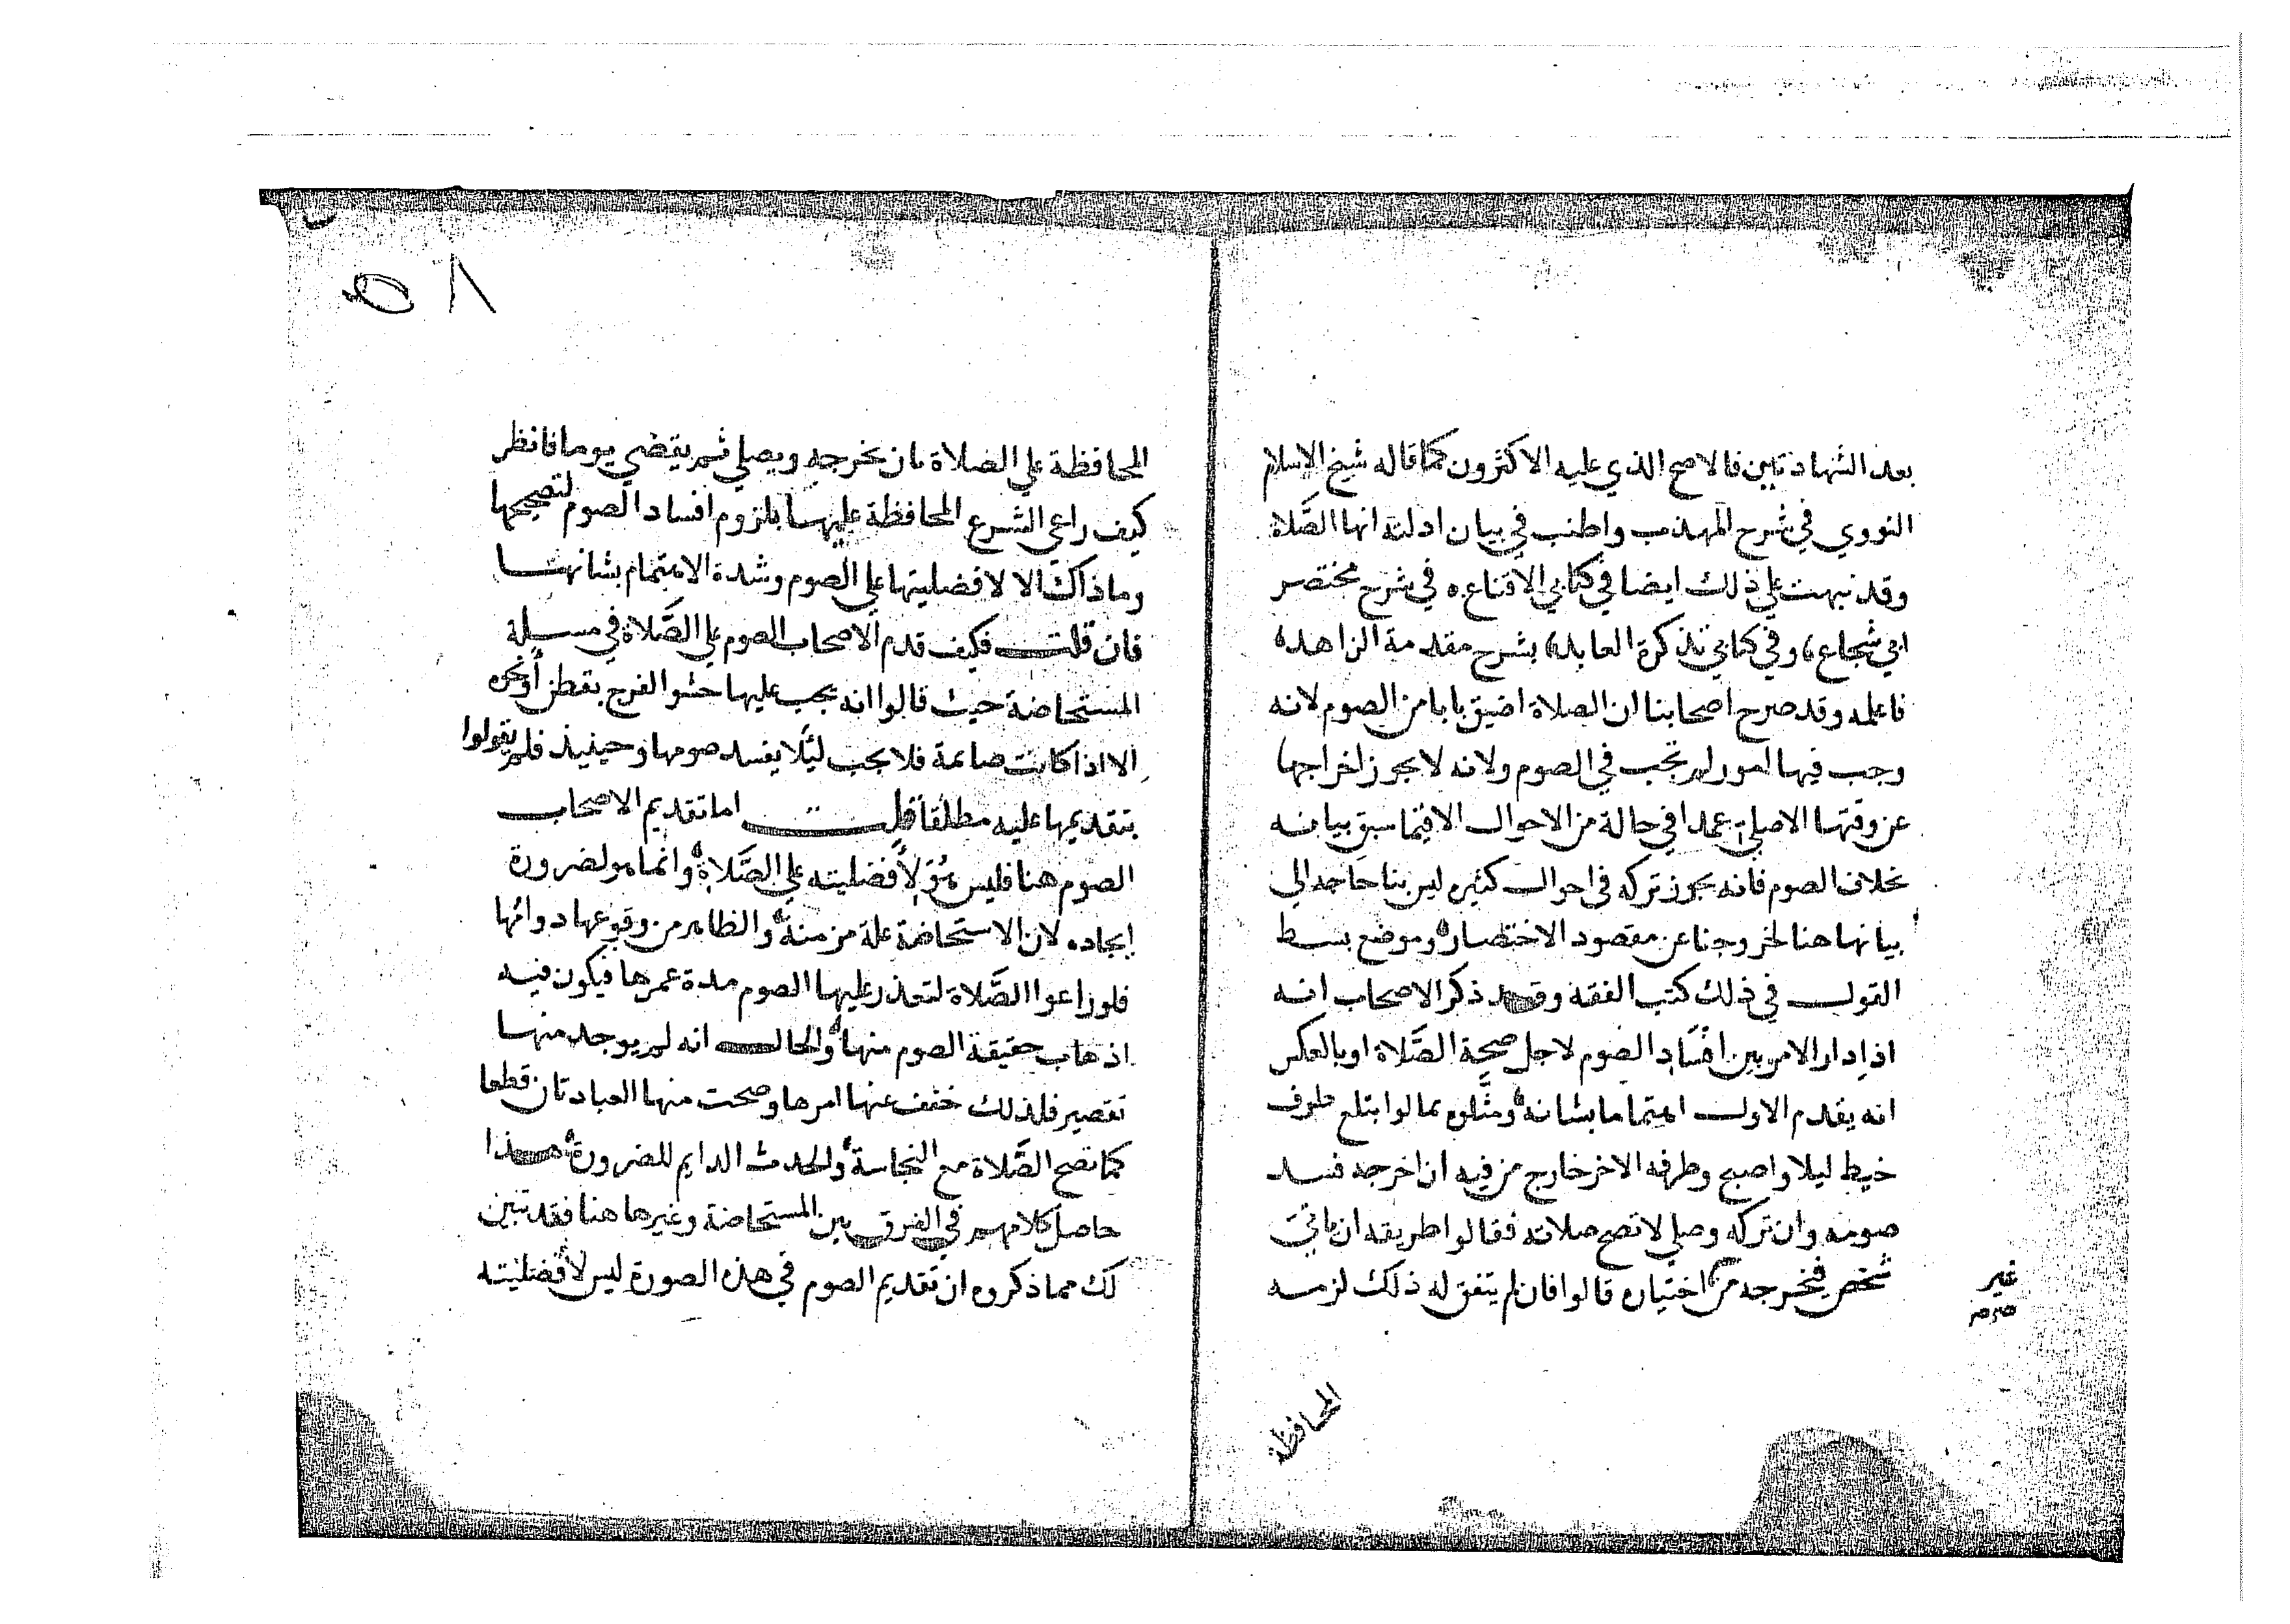 بعد الشهادتين فالاصح الذي عليه الاكثرون كما قاله شيخ الاسلام
النووي في شرح المهذب واطنب في بيان ادلته انها الصَّلاة
وقد نبهت علي ذلك ايضا في كتابي الاقناع في شرح مختصر
ابي شجاع وفي كتابي تذكرة العابد بشرح مقدمة الزاهد
فاعلمه وقد صرح اصحابنا ان الصلاة اضيق بابا من الصوم لانه
وجب فيها امور لم تجب في الصوم ولانه لا يجوز اخراجها
عن وقتها الاصلي عمدا في حالة من الاحوال الا فيما سبق بيانه
بخلاف الصوم فانه يجوز تركه في احوال كثيره ليس بنا حاجه الي
بيانها هنا لخروجنا عن مقصود الاختصار وموضع بسط
القول في ذلك كتب الفقه وقد ذكر الاصحاب انه
اذا دار الامر بين افساد الصوم لاجل صحة الصَّلاة او بالعكس
انه يقدم الاول اهتماما بشانه ومثَّلوه بما لو ابتلع طرف
خيط ليلا واصبح وطرفه الاخر خارج من فيه ان اخرجه فسد
صومه وان تركه وصلي لا تصح صلاته فقالوا طريقه ان ياتي
شخص فيخرجه من اختياره قالوا فان لم يتفق له ذلك لزمه
غير
المحافظة
٥٨
المحافظة علي الصلاة بان يخرجه ويصلي ثم يقضي يوما فانظر
كيف راعي الشرع المحافظة عليها بلزوم افساد الصوم لتصحيحها
وما ذاك الا لافضليتها علي الصوم وشدة الاهتمام بشانها
فان قلت فكيف قدم الاصحاب الصوم علي الصَّلاة في مسيلة
المستحاضة حيث قالوا انه يجب عليها حشو الفرج بقطن أو نحوه
الا اذا كانت صايمة فلا يجب ليلا يفسد صومها وحينيذ فلم يقولوا
بتقديمها عليه مطلقا قلت اما تقديم الاصحاب
الصوم هنا فليس هو لأفضليته علي الصَّلاة وانما هو لضرورة
إيجاده لان الاستحاضة علة مزمنة والظاهر من وقوعها دوامها
فلو راعوا الصَّلاة لتعذر عليها الصوم مدة عمرها فيكون فيه
اذهاب حقيقة الصوم منها والحال انه لم يوجد منها
تقصير فلذلك خفف عنها امرها وصحت منها العبادتان قطعا
كما تصح الصَّلاة مع النجاسة والحدث الدايم للضرورة هذا
حاصل كلامهم في الفرق بين المستحاضة وغيرها هنا فقد تبين
لك مما ذكروه ان تقديم الصوم في هذه الصورة ليس لأفضليته